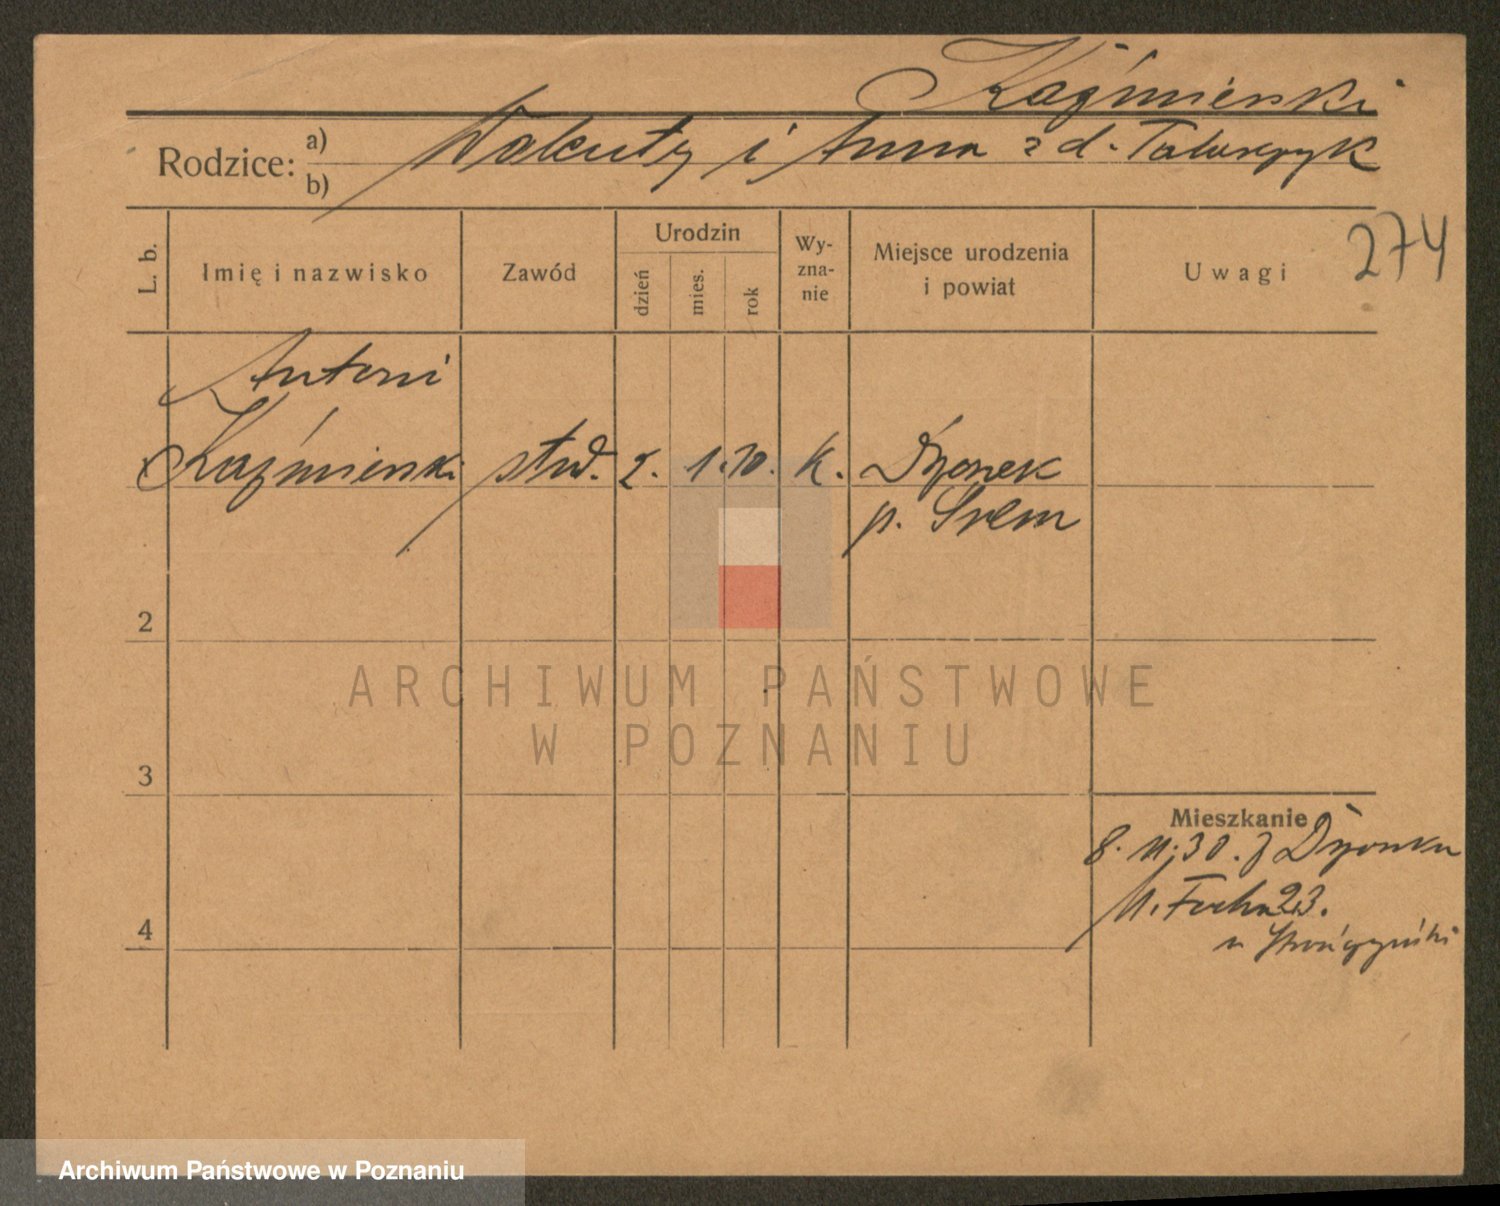 Kaźmierski
Rodzice: a) b) Walenty i Anna z d. Tatarczyk
274
L. b. Imię i nazwisko Zawód Urodzin dzień mies. rok Wy-zna-nie Miejsce urodzenia i powiat Uwagi
Antoni
Kaźmierski stud. 2. 1. 10. k. Drzonek
p. Śrem
2
ARCHIWUM PAŃSTWOWE
W POZNANIU
3
Mieszkanie
8. 11. 30. z Drzonka
M. Focha 23.
4
u
Archiwum Państwowe w Poznaniu